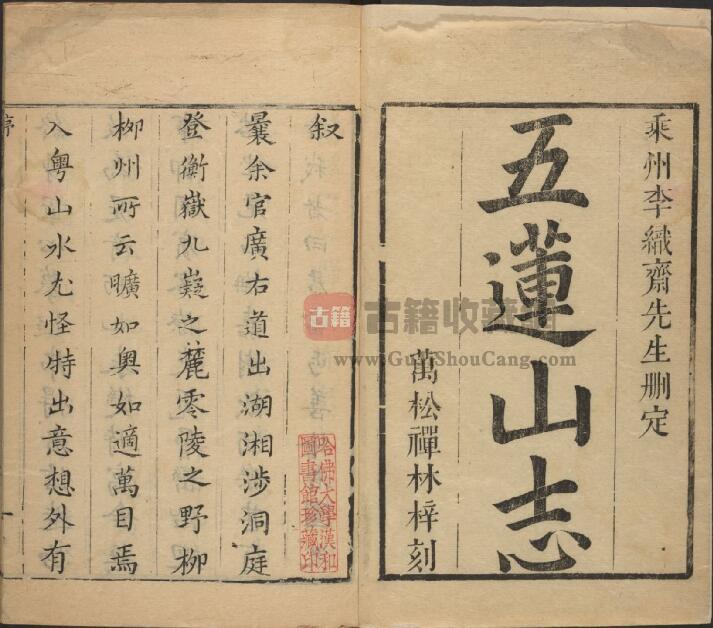 乘州李織齋先生刪定
五蓮山志
萬松禪林梓刻
叙
曩余官廣右道出湖湘涉洞庭
登衡嶽九嶷之麓零陵之野柳
柳州所云曠如奧如適萬目焉
入粵山水尤怪特出意想外有
序
一
哈佛大學漢和
圖書館珍藏印
古籍
古籍收藏